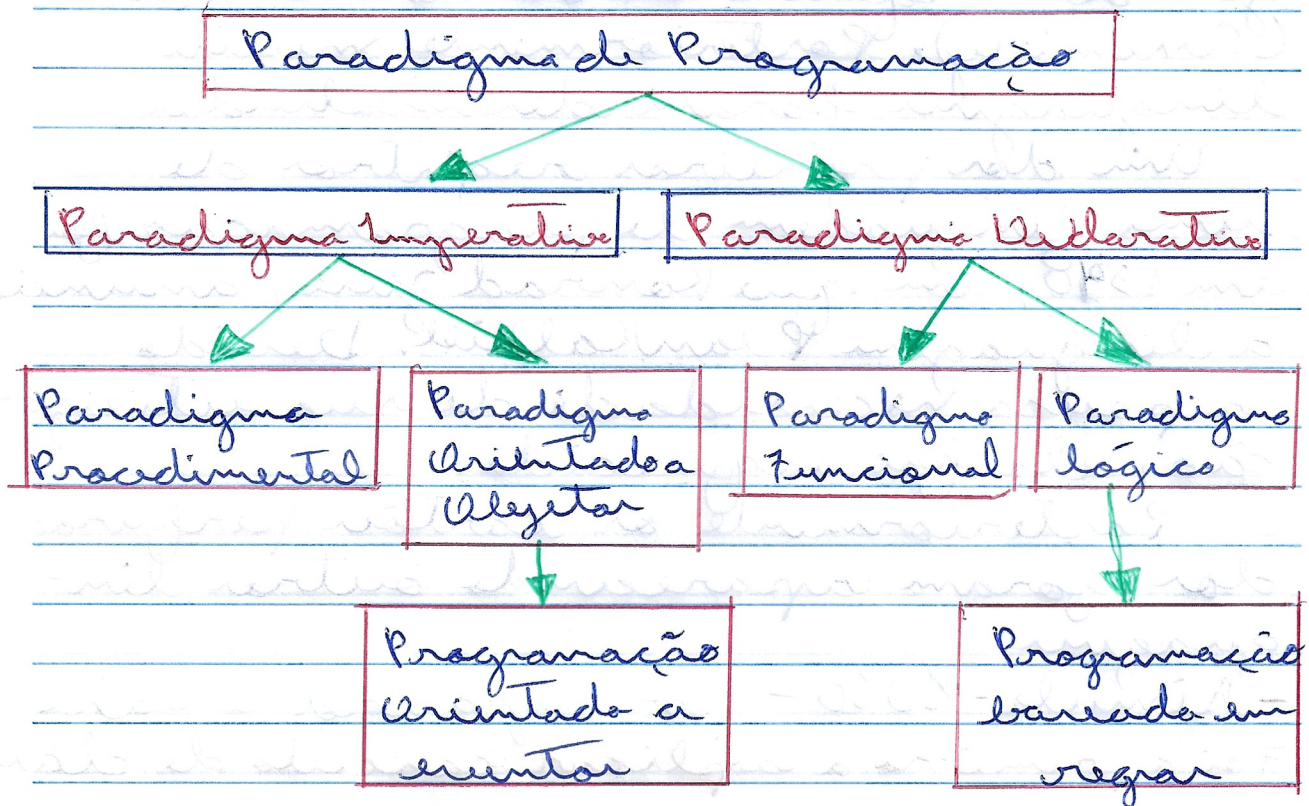 Paradigma de Programação
Paradigma Imperativo
Paradigma Declarativo
Paradigma
Procedimental
Paradigma
Orientado a
Objetos
Paradigma
Funcional
Paradigma
lógico
Programação
Orientada a
eventos
Programação
baseada em
regras